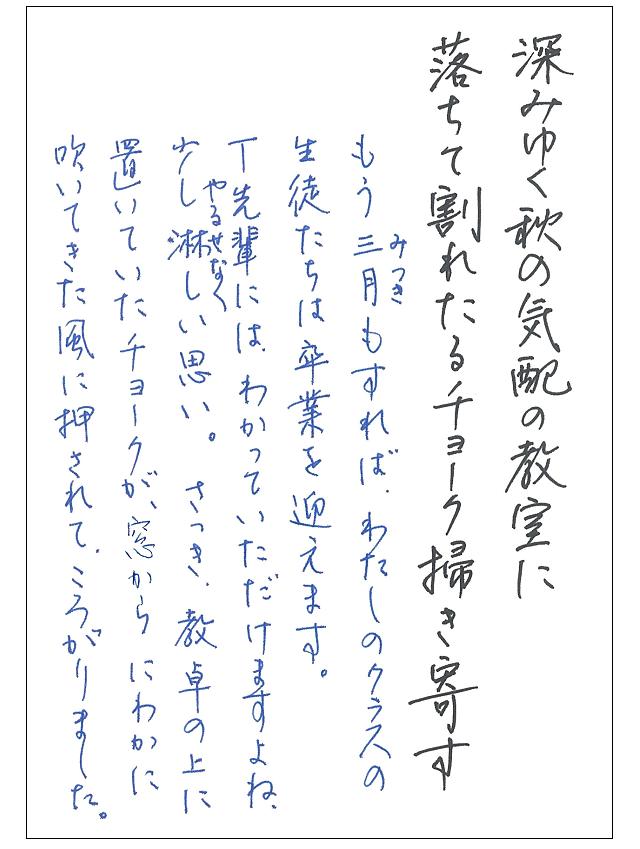 深みゆく秋の気配の教室に
落ちて割れたるチョーク掃き寄す
もう三月もすれば、わたしのクラスの
みつき
生徒たちは卒業を迎えます。
T先輩には、わかっていただけますよね、
やるせなく
少し淋しい思い。さっき、教卓の上に
置いていたチョークが、窓からにわかに
吹いてきた風に押されて、ころがりました。